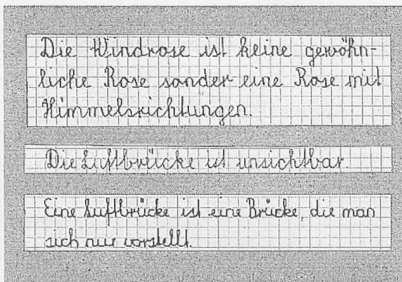 Die Windrose ist keine gewöhn-
liche Rose sonder eine Rose mit
Himmelsrichtungen.
Die Luftbrücke ist unsichtbar.
Eine Luftbrücke ist eine Brücke, die man
sich nur vorstellt.